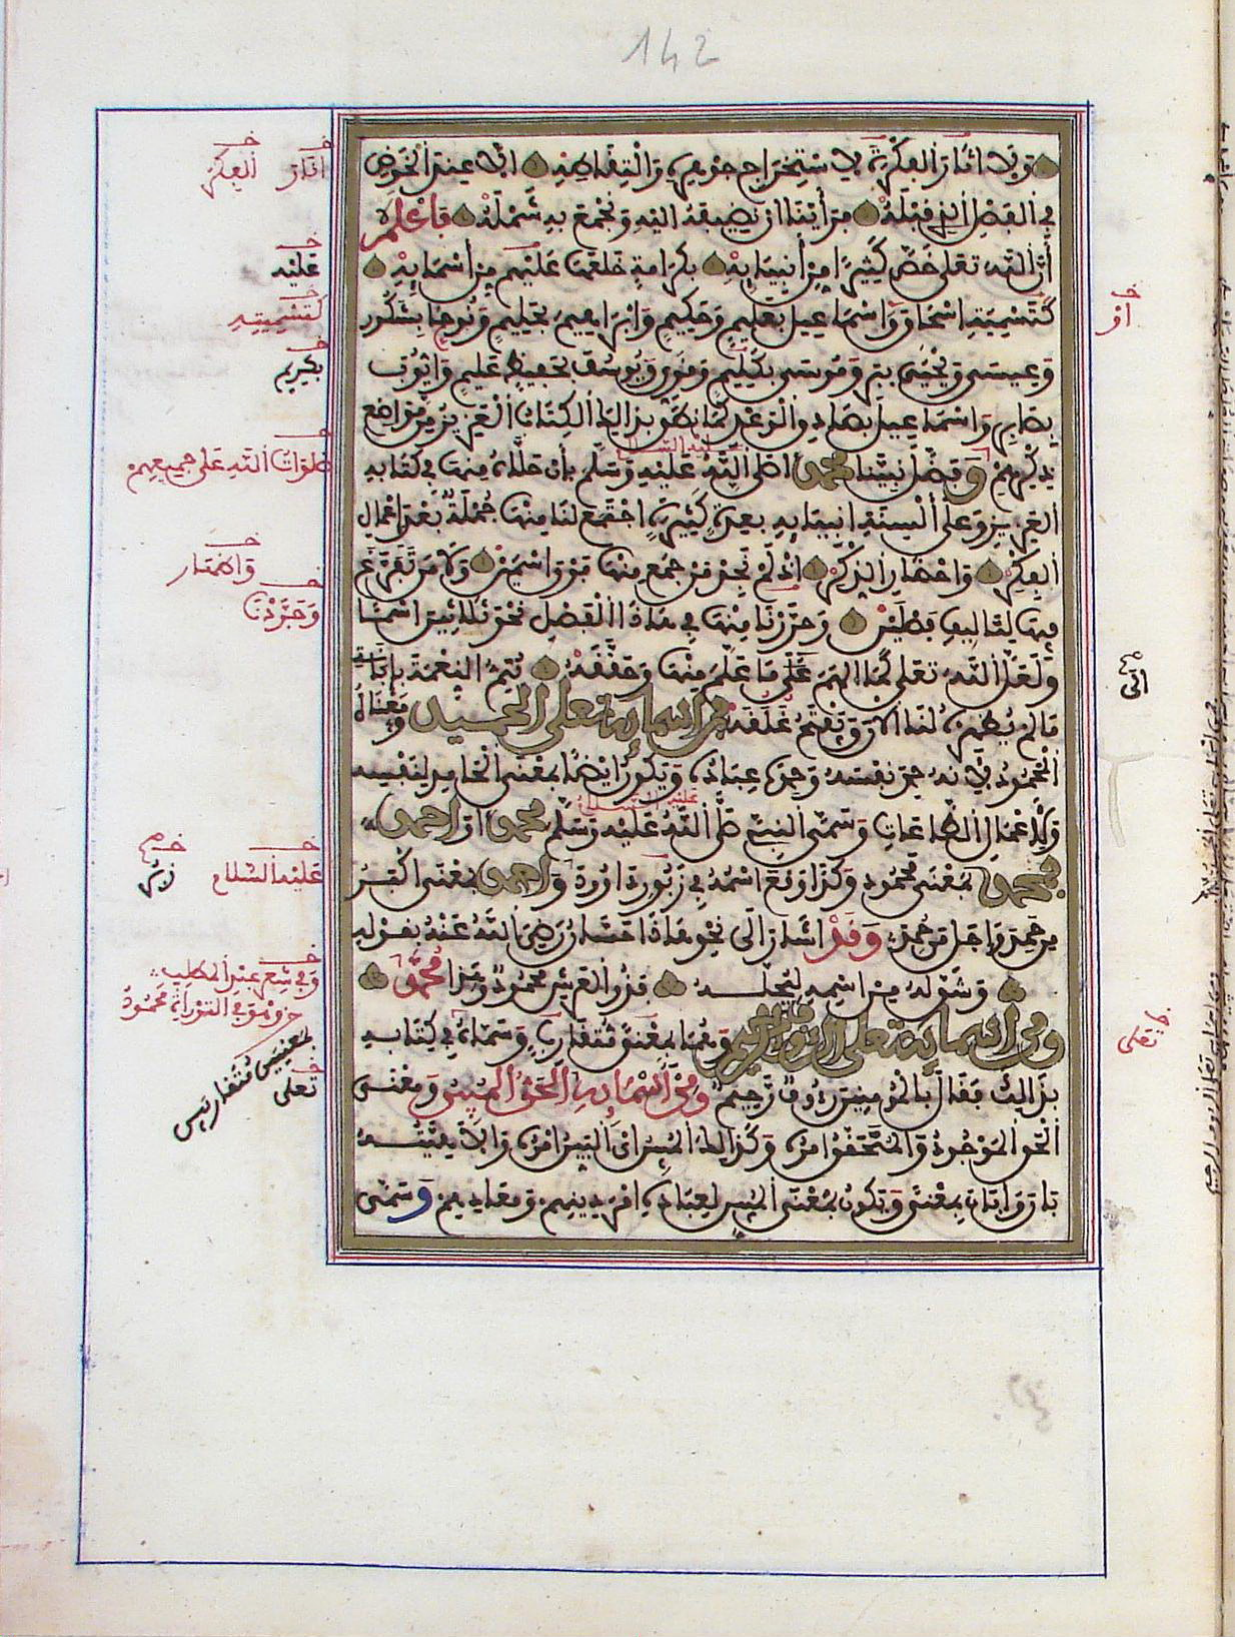 142
ولا أثار الفكرة لاستخراج جوهره والتقاطه إلا عند الخوض
في الفصل الذي قبله فرأينا أن نضيفه إليه ونجمع به شمله فاعلم
أن الله تعلى خص كثيرا من أنبيائه بكرامة خلعها عليهم من أسمائه
كتسمية إسحاق وإسماعيل بعليم وحكيم وإبراهيم بحليم ونوح بشكور
وعيسى ويحيى ببر وموسى بكليم وقوي ويوسف بحفيظ عليم وأيوب
بصابر وإسماعيل بصادق الوعد كما نطق بذلك الكتاب العزيز من مواضع
ذكرهم وفضل نبينا محمدا صلى الله عليه وسلم بأن حلاه منها في كتابه
العزيز وعلى ألسنة أنبيائه بعدة كثيرة اجتمع لنا منها جملة بعد إعمال
الفكر وإحضار الذكر إذ لم نجد من جمع منها فوق اسمين ولا من تفرغ
فيها لتأليف فصلين وحررنا منها في هذا الفصل نحو ثلاثين اسما
ولعل الله تعلى كما ألهم على ما علم منها وحققه يتم النعمة بإبانة
ما لم يظهره لنا الآن ويفتح غلقه فمن أسمائه تعلى الحميد ومعناه
المحمود لأنه حمد نفسه وحمده عباده ويكون أيضا بمعنى الحامد لنفسه
ولأعمال الطاعات وسمى النبي صلى الله عليه وسلم محمدا وأحمد
فمحمد بمعنى محمود وكذا وقع اسمه في زبور داوود وأحمد بمعنى أكبر
من حمد وأجل من حمد وقد أشار إلى نحو هذا حسان رضي الله عنه بقوله
وشق له من اسمه ليجله فذو العرش محمود وهذا محمد
ومن أسمائه تعلى الرءوف الرحيم وهما بمعنى متقارب وسماه في كتابه
بذلك فقال بالمومنين رءوف رحيم ومن أسمائه الحق المبين ومعنى
الحق الموجود والمتحقق أمره وكذلك المبين أي البين أمره وإلاهيته
بان وأبان بمعنى ويكون بمعنى المبين لعباده أمر دينهم ومعادهم وسمى
أثار الفكر
عليه
كتسميته
بكريم
صلوات الله على جميعهم
وإحضار
وجردنا
عليه السلام
وفي شعر عبد المطلب
بمعنيين متقاربين
تعلى
أو
تعلى